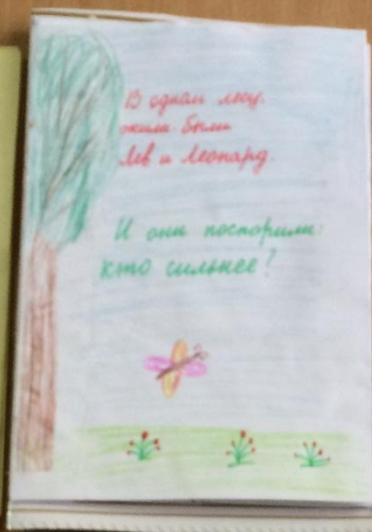 В одном лесу.
жили были
Лев и Леопард.
И они поспорили:
кто сильнее?